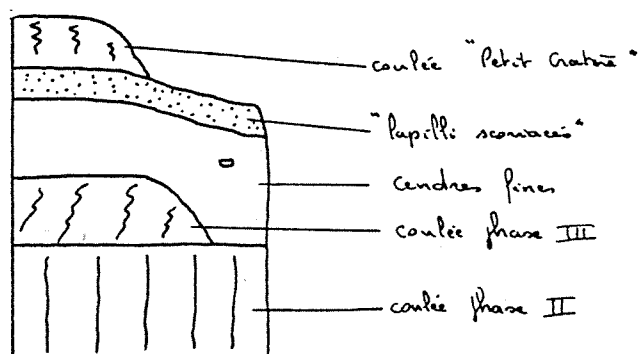 coulée "Petit Cratère"
"lapilli scoriacés"
cendres fines
coulée phase III
coulée phase II